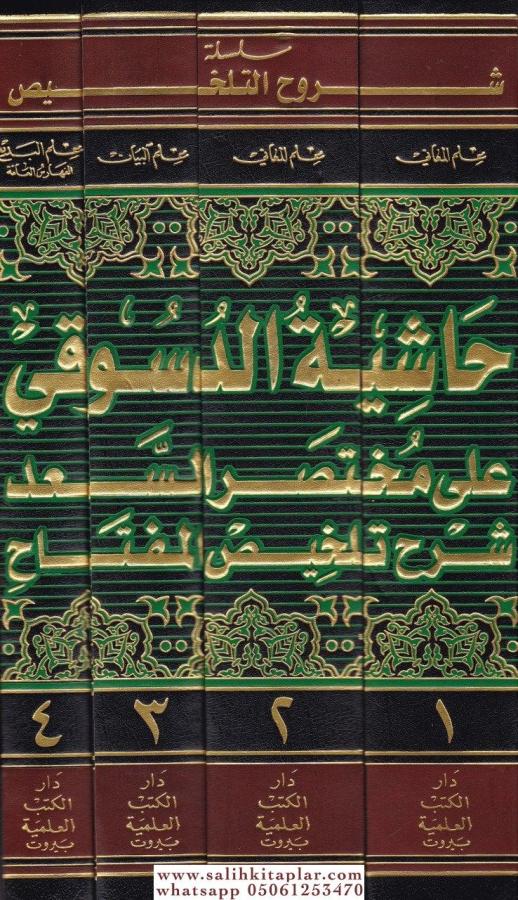 سلسلة
شروح التلخيص
علم المعاني
علم المعاني
علم البيان
علم البديع
الفهارس العامة
حَاشِيَةُ الدُّسُوقي
على مُختَصَر السَّعد
شرح تلخيص المفتاح
١
٢
٣
٤
دار
الكتب
العلمية
بيروت
دار
الكتب
العلمية
بيروت
دار
الكتب
العلمية
بيروت
دار
الكتب
العلمية
بيروت
www.salihkitaplar.com
whatsapp 05061253470